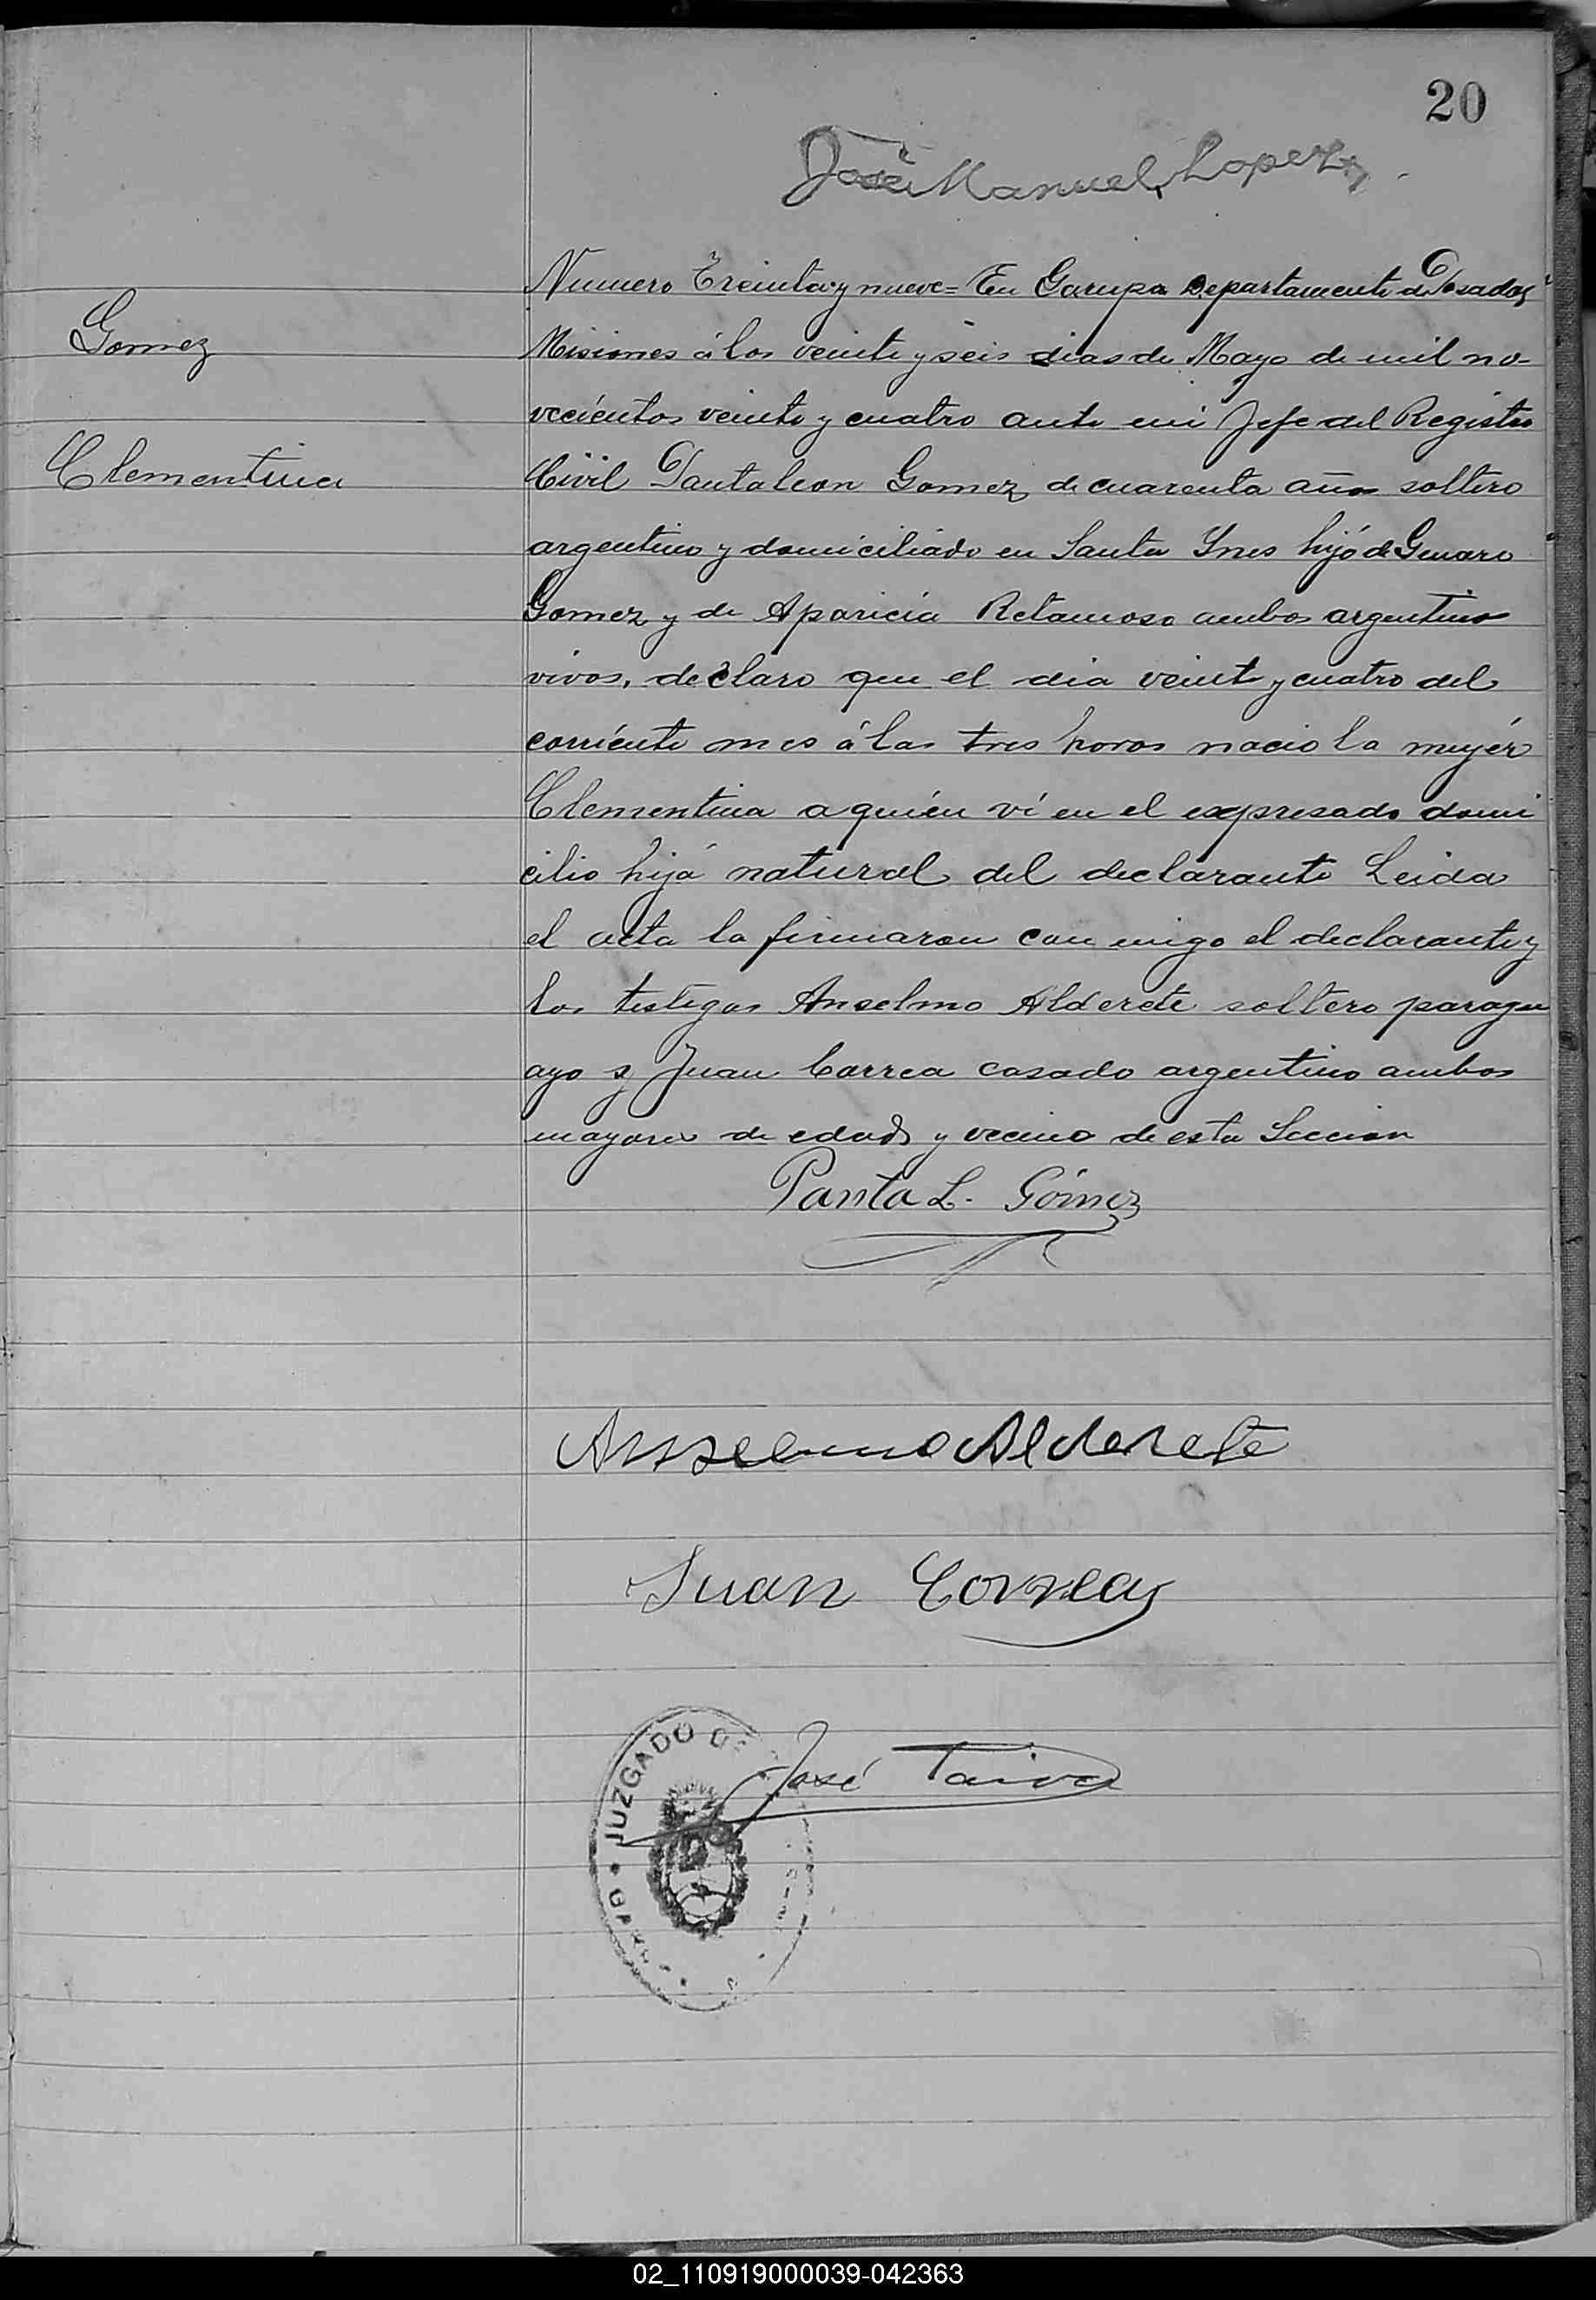 20
José Manuel Lopez
Numero Treinta y nueve = En Garupa Departamento de Posadas
Gomez
Misiones á los veinte y seis dias de Mayo de mil no-
vecientos veinte y cuatro ante mi Jefe del Registro
Clementina
Civil Pantaleon Gomez de cuarenta años soltero
argentino y domiciliado en Santa Ynes hijo de Genaro
Gomez y de Aparicia Retamoso ambos argentinos
vivos, declaro que el dia veinte y cuatro del
corriente mes á las tres horas nacio la mujer
Clementina a quien ví en el expresado domi
cilio hija natural del declarante Leida
el acta la firmaron con migo el declarante y
los testigos Anselmo Alderete soltero paragu
ayo y Juan Correa casado argentino ambos
mayores de edad y vecino de esta Seccion
Panta L. Gómez
Anselmo Alderete
Juan Correa
JUZGADO DE
José Paiva
02_110919000039-042363